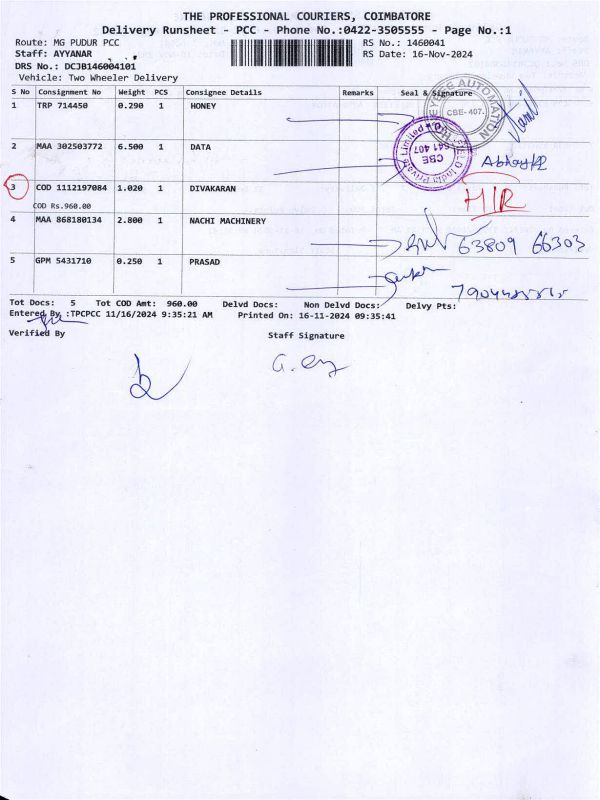 THE PROFESSIONAL COURIERS, COIMBATORE
Delivery Runsheet - PCC - Phone No.:0422-3505555 - Page No.:1
Route: MG PUDUR PCC RS No.: 1460041
Staff: AYYANAR RS Date: 16-Nov-2024
DRS No.: DCJB146004101
Vehicle: Two Wheeler Delivery
S No Consignment No Weight PCS Consignee Details Remarks Seal & Signature
1 TRP 714450 0.290 1 HONEY
EYES AUTOMATION
CBE- 407.
2 MAA 302503772 6.500 1 DATA
India Private Limited
CBE
641 407
3 COD 1112197084 1.020 1 DIVAKARAN
H/R
COD Rs.960.00
4 MAA 868180134 2.800 1 NACHI MACHINERY
63809 66303
5 GPM 5431710 0.250 1 PRASAD
Tot Docs: 5 Tot COD Amt: 960.00 Delvd Docs: Non Delvd Docs: Delvy Pts:
Entered By :TPCPCC 11/16/2024 9:35:21 AM Printed On: 16-11-2024 09:35:41
Verified By Staff Signature